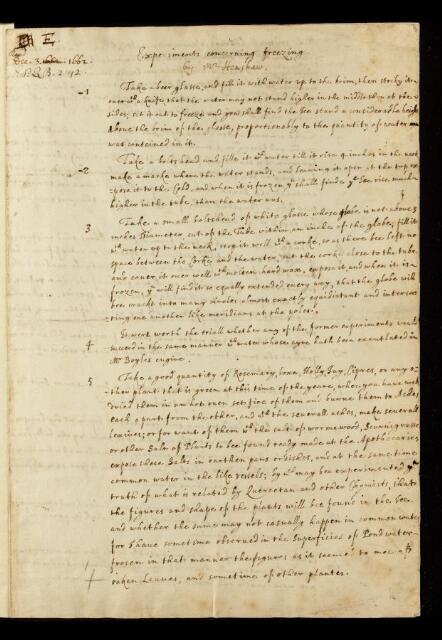 E.
Dec. 3. 1662
R.B. 2. 42.
Experiments concerning freezing
by Mr Henshaw.
1
Take a beer glasse, and fill it with water up to the brim, then strike it
over wth a knife, that the water may not stand higher in the middle then at the
sides; set it out to freeze and you shall find the Ice stand a considerable height
above the brim of the glasse, proportionably to the quantity of water
was conteined in it.
2
Take a bolts head and fill it wth water till it rise 4 inches in the neck
make a marke where the water stands, and leaving it open at the top
expose it to the Cold, and when it is frozen yu shall finde ye Ice, rise much
higher in the tube, then the water was.
3
Take a small boltshead of white glasse whose globe is not above 3
inches Diameter cut of the tube within an inch of the globe, fill it
wth water up to the neck, stop it well wth a corke, so as there bee left no
space between the Corke and the water, cut the corke close to the tube
and cover it over well wth molten hard wax, expose it, and when it is
frozen, yu will find it so equally extended every way, that the globe will
bee crackt into many circles almost exactly equidistant and intersec
ting one another like meridians at the poles.
4
It were worth the triall whether any of the former experiments would
succeed in the same manner wth water whose ayre hath been exantlated in
Mr Boyles engine.
5
Take a good quantity of Rosemary, Box, Holly, Bay, Cipres, or any o-
ther plant that is green at this time of the yeare, when you have well
dried them in an hot oven set fire of them and burne them to Ashes
each apart from the other, and wth the severall ashes, make severall
lexives; or for want of them wth the salt of wormewood, Scurvigrasse
or other Salts of Plants to bee found ready made at the Apothecaries,
expose these Salts in earthen pans or dishes, and at the same time
common water in the like vessels; by wch may bee experimented ye
truth of what is related by Quercetan and other Chymists, that
the figures and shape of the plants will bee found in the Ice.
and whether the same may not casually happen in common water
for I have sometime observed in the Superficies of Pond water
frozen in that manner the figures as it seemed to mee of
oaken Leaves, and sometime of other plantes.